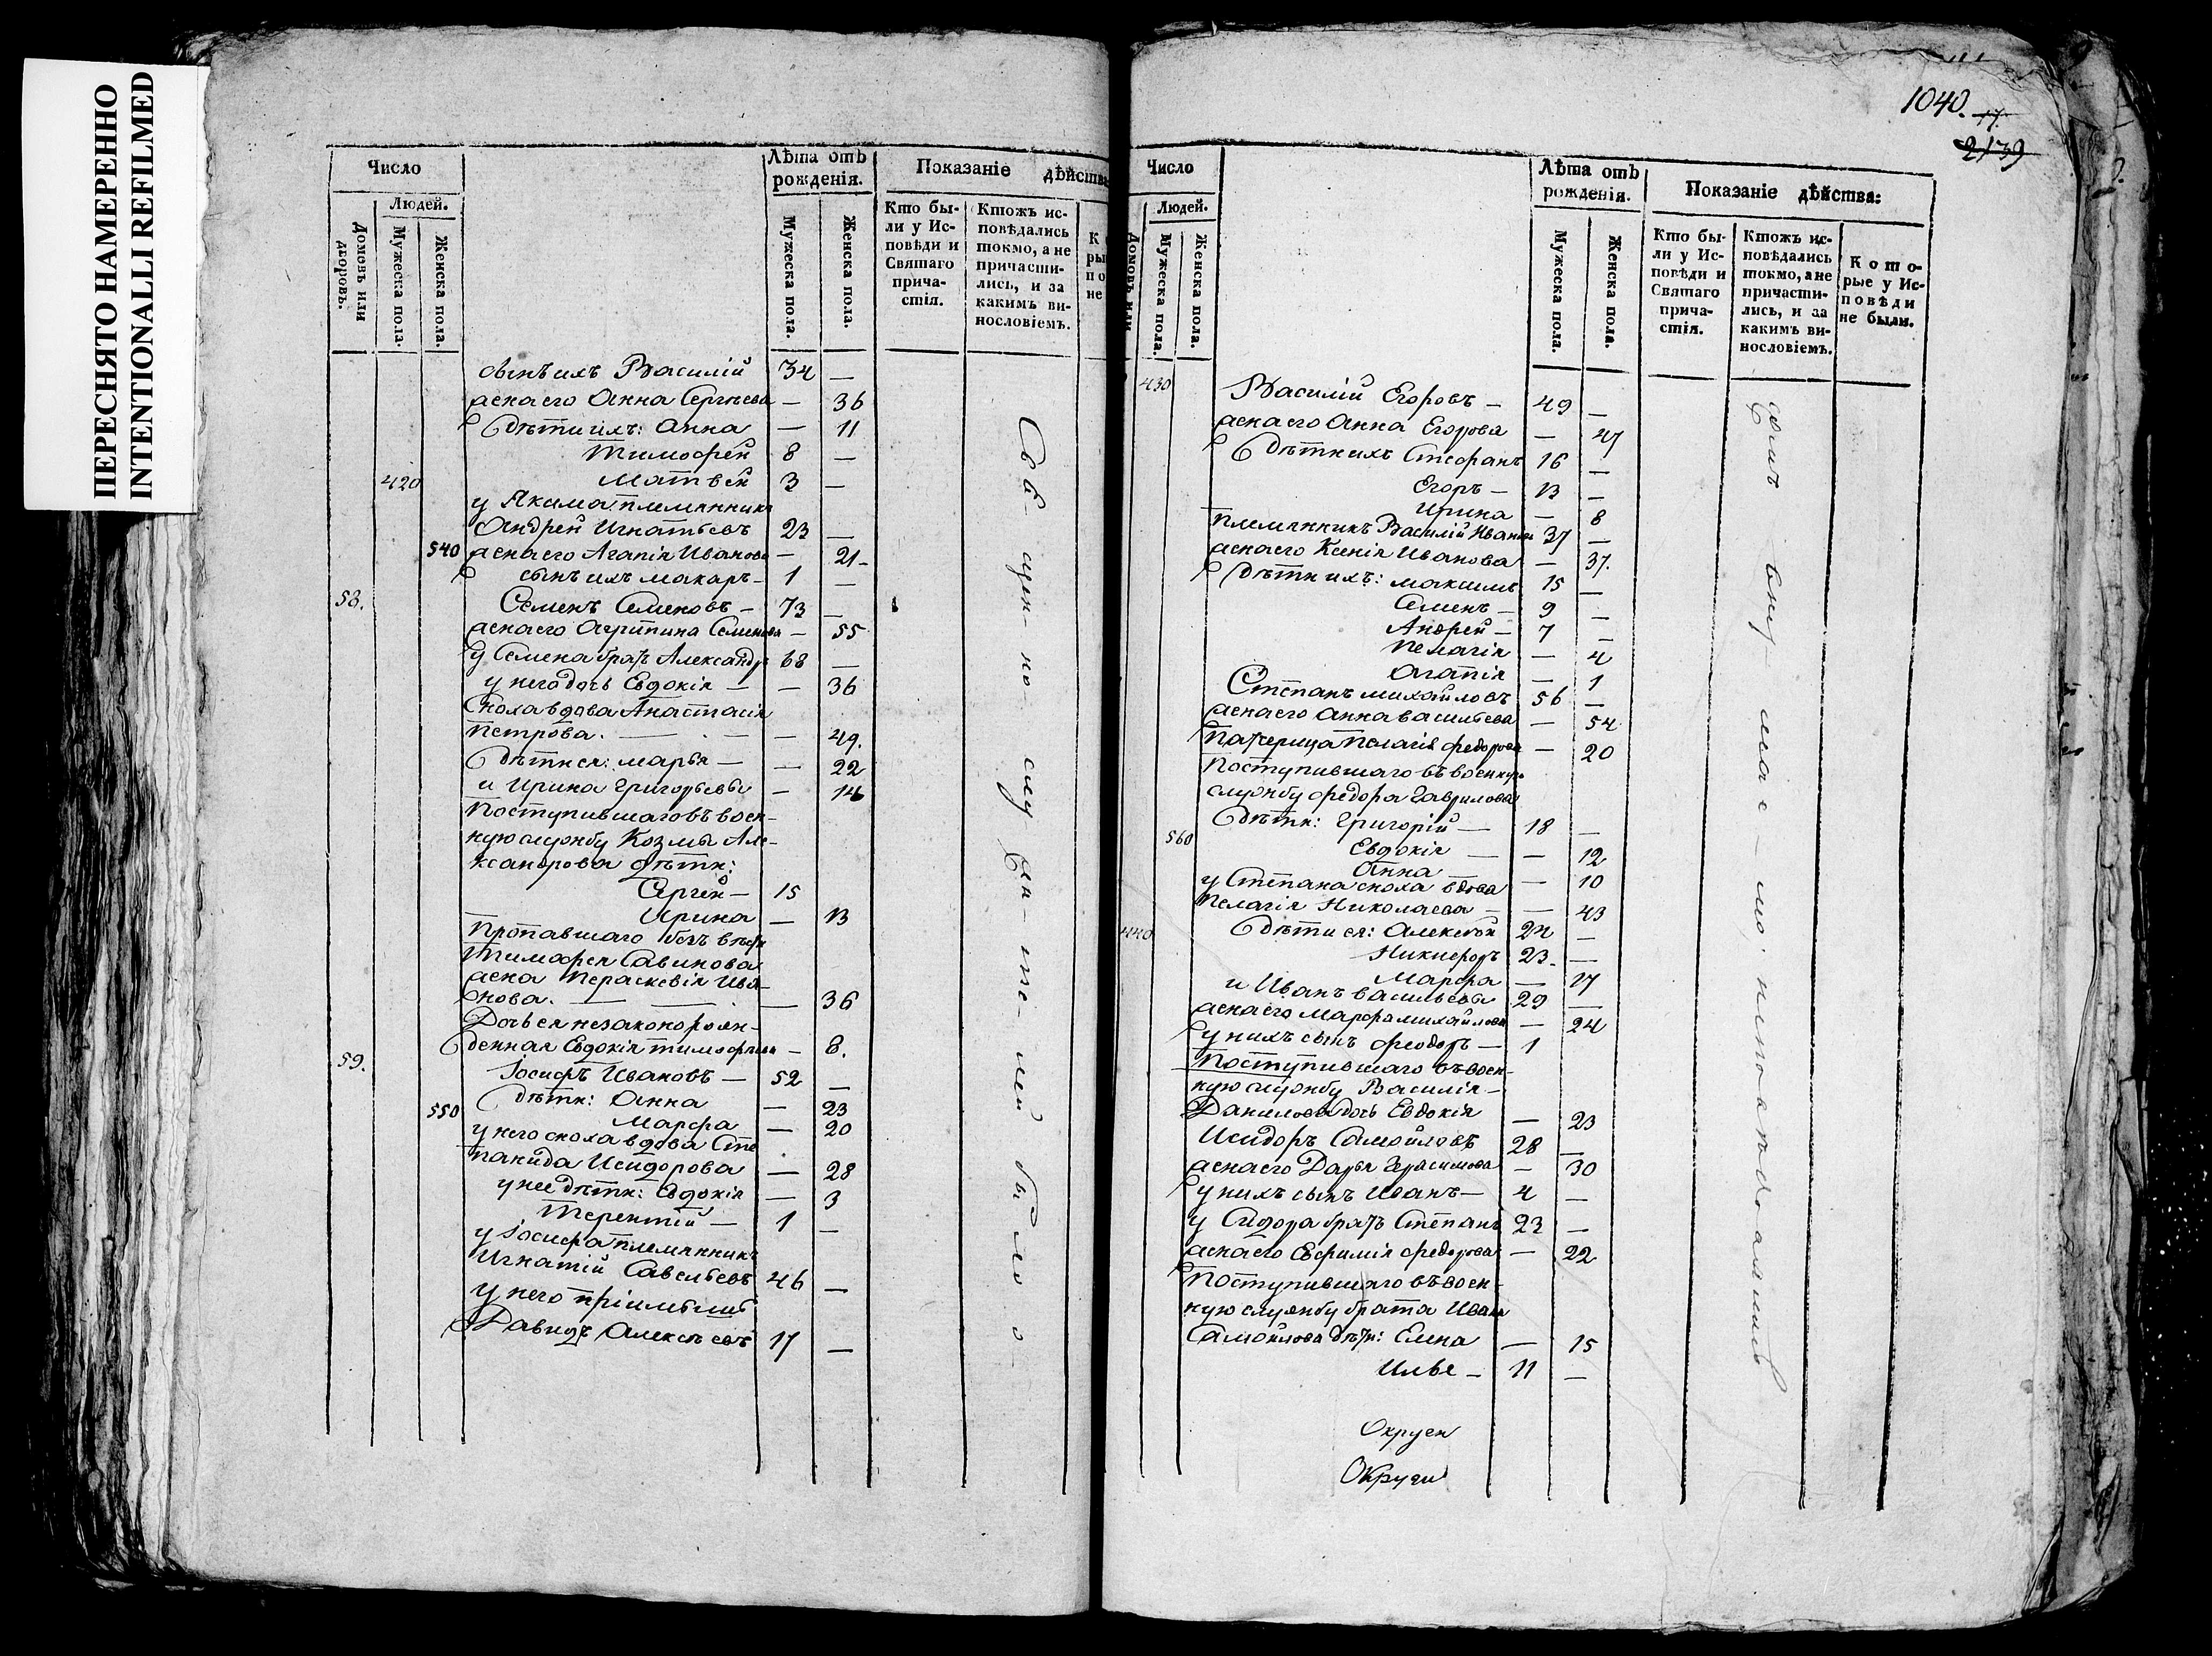 ПЕРЕСНЯТО НАМЕРЕННО
INTENTIONALLI REFILMED
Число
Людей.
Домовъ или дворовъ.
Мужеска пола.
Женска пола.
Лѣта отъ рожденія.
Мужеска пола.
Женска пола.
Показаніе дѣйства
Кто были у Исповѣди и Святаго причастія.
Ктожъ исповѣдались токмо, а не причастились, и за какимъ винословіемъ.
сынъ ихъ Василій 34 —
жена его Анна Сергѣева — 36
дѣти ихъ: Анна — 11
Тимофей 8 —
420 Матвей 3 —
у Якима племянникъ
Андрей Игнатьевъ 23 —
540 жена его Агапія Иванова — 21 -
сынъ ихъ Макаръ - 1 —
58. Семенъ Семеновъ — 73 —
жена его Агрипина Семенова — 55
у Семена братъ Александръ 68 —
у него дочь Евдокія — — 36
Сноха вдова Анастасія
Петрова. — — 49.
дѣти ея: Марья — — 22
и Ирина Григорьевы — 14
Поступившаго въ воен-
ную службу Козмы Але-
ксандрова дѣти:
Сергей — 15
Ирина — 13
Пропавшаго безъ вѣсти
Тимофея Савинова
жена Параскевія Ива-
нова. — — 36
Дочь ея незаконорож-
денная Евдокія Тимофеева — 8.
59. Іосифъ Ивановъ — 52 —
дѣти: Анна — 23
550 Марфа — 20
у него сноха вдова Сте
панида Исидорова — 28
у нее дѣти: Евдокія — 3
Терентій — 1 —
у Іосифа племянникъ
Игнатій Савельевъ 46 —
у него пріимышъ
Давидъ Алексѣевъ 17 —
1040.
17.
2139
Число
Людей.
Домовъ или
Мужеска пола.
Женска пола.
Лѣта отъ рожденія.
Мужеска пола.
Женска пола.
Показаніе дѣйства:
Кто были у Исповѣди и Святаго причастія.
Ктожъ исповѣдались токмо, а не причастились, и за какимъ винословіемъ.
Которые у Исповѣди не были.
430 Василій Егоровъ — 49 —
жена его Анна Егорова — 47
дѣти ихъ Стефанъ 16 —
Егоръ — 13 —
Ирина — 8
племянникъ Василій Иванов 37 —
жена его Ксенія Иванова — 37.
дѣти ихъ: Максимъ 15 —
Семенъ — 9 —
Андрей — 7 —
Пелагія — 4
Агапія — 1
Степанъ Михайловъ 56 —
жена его Анна Васильева — 54
Падчерица Пелагія Федорова — 20
Поступившаго въ военную
службу Федора Гаврилова
дѣти: Григорій — 18 —
560 Евдокія — — 12
Анна — 10
у Степана сноха вдова
Пелагія Николаева — — 43
440 дѣти ея: Алексѣй 24 —
Никифоръ 23 - —
Марфа — 17
и Иванъ Васильевы 29 —
жена его Марфа Михайлова — 24
у нихъ сынъ Феодоръ — 1
Поступившаго въ воен-
ную службу Василія
Данилова дочь Евдокія — 23
Исидоръ Самойловъ 28 —
жена его Дарья Герасимова — 30
у нихъ сынъ Иванъ — 4 —
у Сидора братъ Степанъ 23 —
жена его Евфимія Федорова — 22
Поступившаго въ воен-
ную службу брата Ивана
Самойлова дѣти: Елена — 15
Илья — 11 —
Округи
Округи